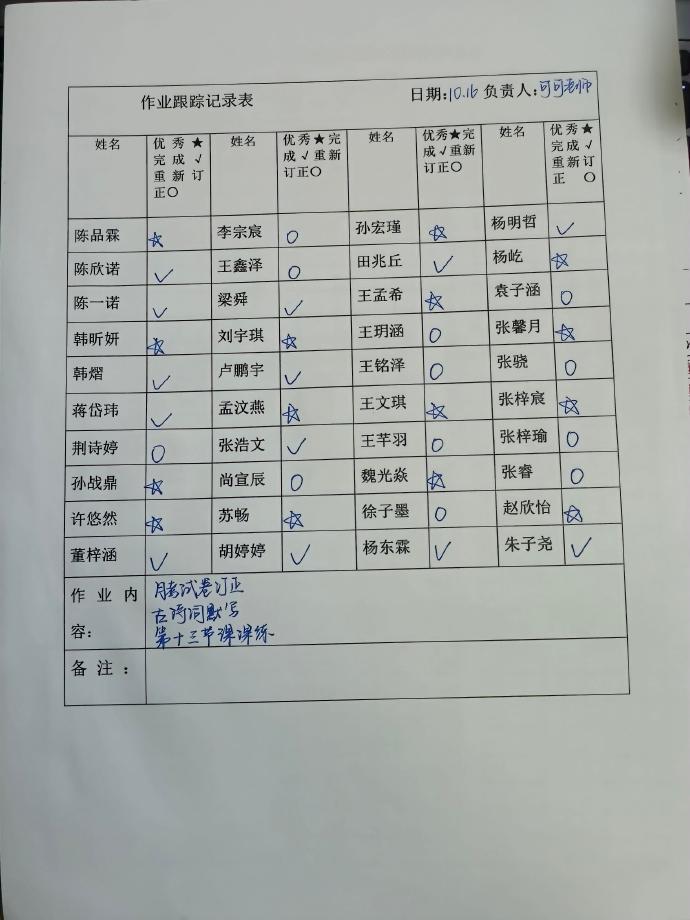 作业跟踪记录表 日期:10.16 负责人:可可老师
姓名 优秀★完成√重新订正〇 姓名 优秀★完成√重新订正〇 姓名 优秀★完成√重新订正〇 姓名 优秀★完成√重新订正〇
陈品霖 ☆ 李宗宸 〇 孙宏瑾 ☆ 杨明哲 √
陈欣诺 √ 王鑫泽 〇 田兆丘 √ 杨屹 ☆
陈一诺 √ 梁舜 √ 王孟希 ☆ 袁子涵 〇
韩昕妍 ☆ 刘宇琪 ☆ 王玥涵 〇 张馨月 ☆
韩熠 √ 卢鹏宇 √ 王铭泽 〇 张骁 〇
蒋岱玮 √ 孟汶燕 ☆ 王文琪 ☆ 张梓宸 ☆
荆诗婷 〇 张浩文 √ 王芊羽 〇 张梓瑜 〇
孙战鼎 ☆ 尚宣辰 〇 魏光焱 ☆ 张睿 〇
许悠然 ☆ 苏畅 ☆ 徐子墨 〇 赵欣怡 ☆
董梓涵 √ 胡婷婷 √ 杨东霖 √ 朱子尧 √
作业内容: 月考试卷订正
古诗词默写
第十三节课课练
备注: